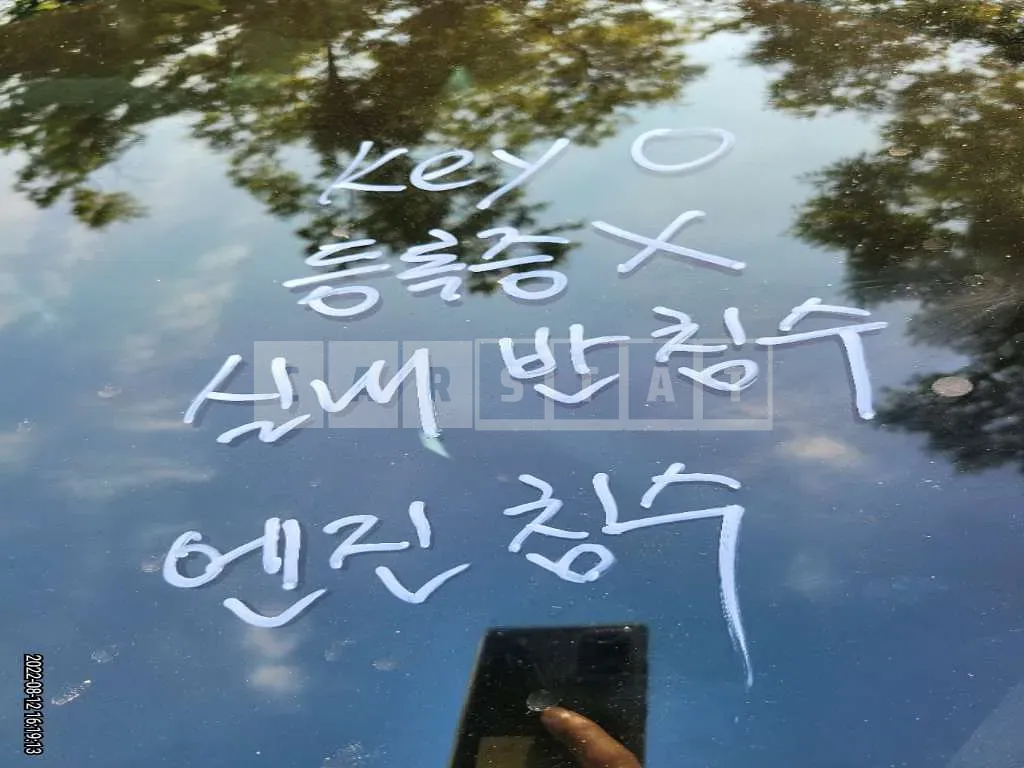 Key O
등록증 X
실내 반침수
엔진 침수
CARSTAT
2022-08-12 16:19:13